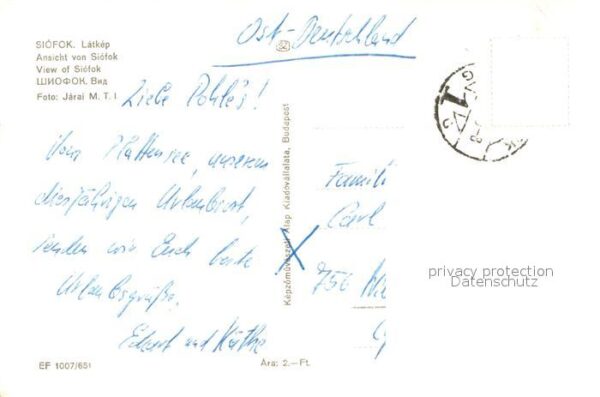 Ost-Deutschland
SIÓFOK. Látkép
Ansicht von Siófok
View of Siófok
ШИОФОК. Вид
Foto: Járai M. T. I.
Liebe Pohle's!
Vom Plattensee, unserem
diesjährigen Urlaubsort,
senden wir Euch beste
Urlaubsgrüße.
Eckart und Käthe
EF 1007/651
Képzőművészeti Alap Kiadóvállalata, Budapest
Ára: 2.— Ft.
Famili
Carl
756
privacy protection
Datenschutz